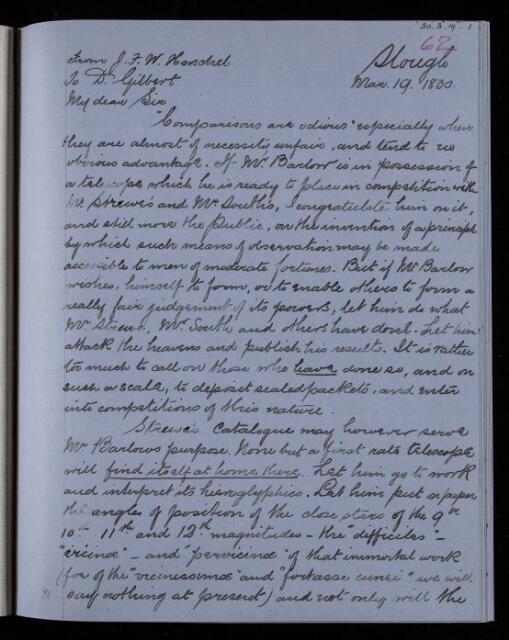 30.3.19.1
62
From J. F. W. Herschel
Slough
To D. Gilbert
Mar. 19. 1830.
My dear Sir
"Comparisons are odious" especially when
they are almost of necessity unfair, and tend to no
obvious advantage. If Mr Barlow is in possession of
a telescope which he is ready to place in competition with
Mr Struve's and Mr South's, I congratulate him on it,
and still more the public, on the invention of a principle
by which such means of observation may be made
accessible to men of moderate fortunes. But if Mr Barlow
wishes, himself to form, or to enable others to form a
really fair judgement of its powers, let him do what
Mr Struve, Mr South and others have done. Let him
attack the heavens and publish his results. It is rather
too much to call on those who have done so, and on
such a scale, to deposit sealed packets, and enter
into competitions of this nature.
Struve's Catalogue may however serve
Mr Barlows purpose. None but a first rate telescope
will find itself at home there. Let him go to work
and interpret its hieroglyphics. Let him put on paper
the angles of position of the close stars of the 9th
10th 11th and 12th magnitudes - the "difficiles" -
"vicinæ" - and "pervicinæ" of that immortal work
(for of the "vicinissimæ" and "fortasse cunei" we will
say nothing at present) and not only will the